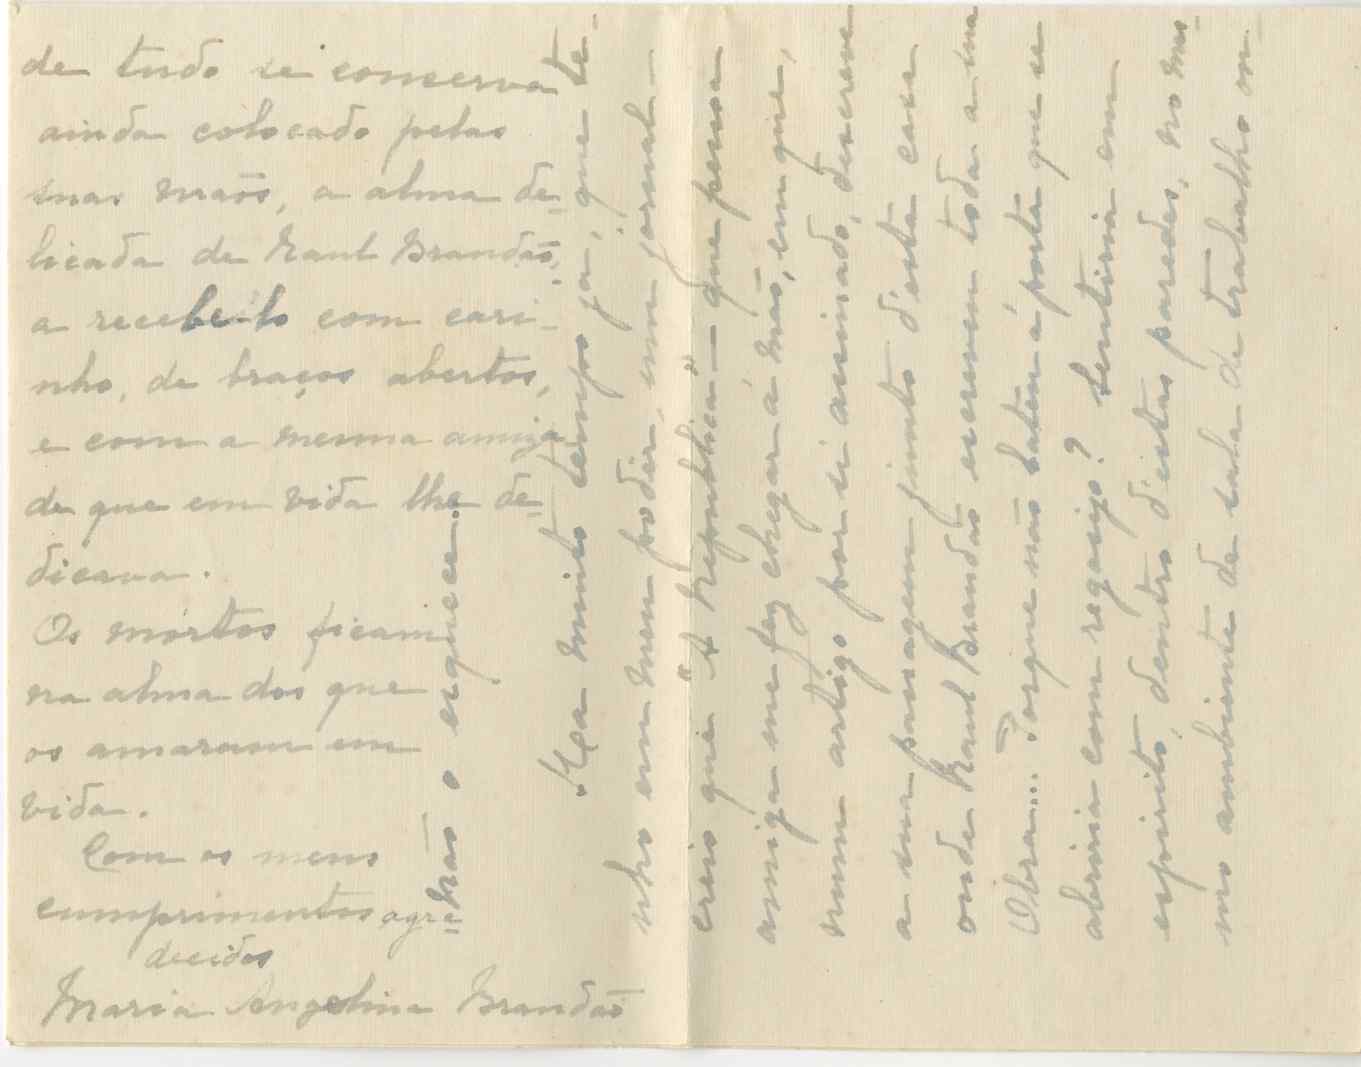 Ha muito tempo já, que te-
nho em meu poder, um jornal —
creio que "A Republica" — que pessoa
amiga me fez chegar á mão, em que,
num artigo por si assinado, descreve
a sua passagem junto d'esta casa
onde Raul Brandão escreveu toda a sua
Obra.... Porque não bateu á porta que se
abriria com regosijo? Sentiria em
espirito, dentro d'estas paredes, no mes-
mo ambiente da sala de trabalho on-
de tudo se conserva
ainda colocado pelas
suas mãos, a alma de-
licada de Raul Brandão,
a recebe-lo com cari-
nho, de braços abertos,
e com a mesma amiza
de que em vida lhe de-
dicava.
Os mortos ficam
na alma dos que
os amaram em
vida.
Com os meus
cumprimentos agra-
decidos
Maria Angelina Brandão
não o esquece.